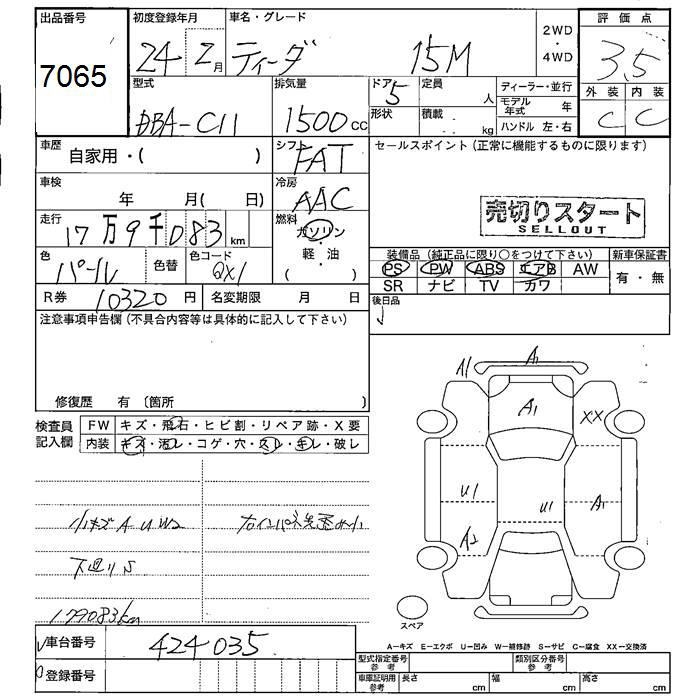 出品番号
7065
初度登録年月
24年2月
車名・グレード
ティーダ 15M
2WD
・
4WD
評価点
3.5
外装 内装
C C
型式
DBA-C11
排気量
1500cc
ドア
5
定員
人
形状
積載
kg
ディーラー・並行
モデル年式 年
ハンドル 左・右
車歴
自家用・( )
シフト
FAT
セールスポイント(正常に機能するものに限ります)
車検
年 月( 日)
冷房
AAC
売切りスタート
SELLOUT
走行
17万9千083km
燃料
ガソリン
・
軽・油
( )
色
パール
色替
色コード
QX1
装備品(純正品に限り○をつけて下さい)
新車保証書
PS PW ABS エアB AW
SR ナビ TV カワ
有・無
R券 10320円
名変期限 月 日
後日品
注意事項申告欄(不具合内容等は具体的に記入して下さい)
修復歴 有〔箇所 〕
検査員
記入欄
FW キズ・飛石・ヒビ割・リペア跡・X要
内装 キズ・汚レ・コゲ・穴・スレ・キレ・破レ
小キズ A U W2
下廻り S
179083km
A1 A1
A1
XX
U1 U1 A1
A2
スペア
車台番号 424035
登録番号
A-キズ E-エクボ U-凹み W-補修跡 S-サビ C-腐食 XX-交換済
型式指定番号
参考
類別区分番号
参考
車庫証明用
参考
長さ cm 幅 cm 高さ cm